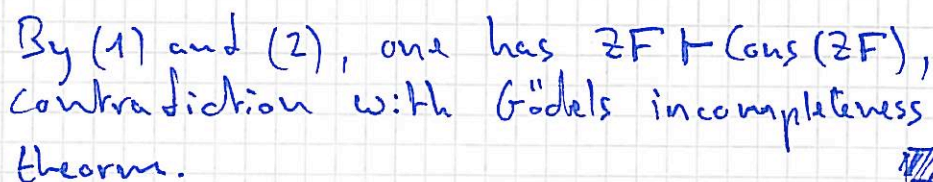 By (1) and (2), one has ZF ⊢ Cons(ZF),
contradiction with Gödels incompleteness
theorem.